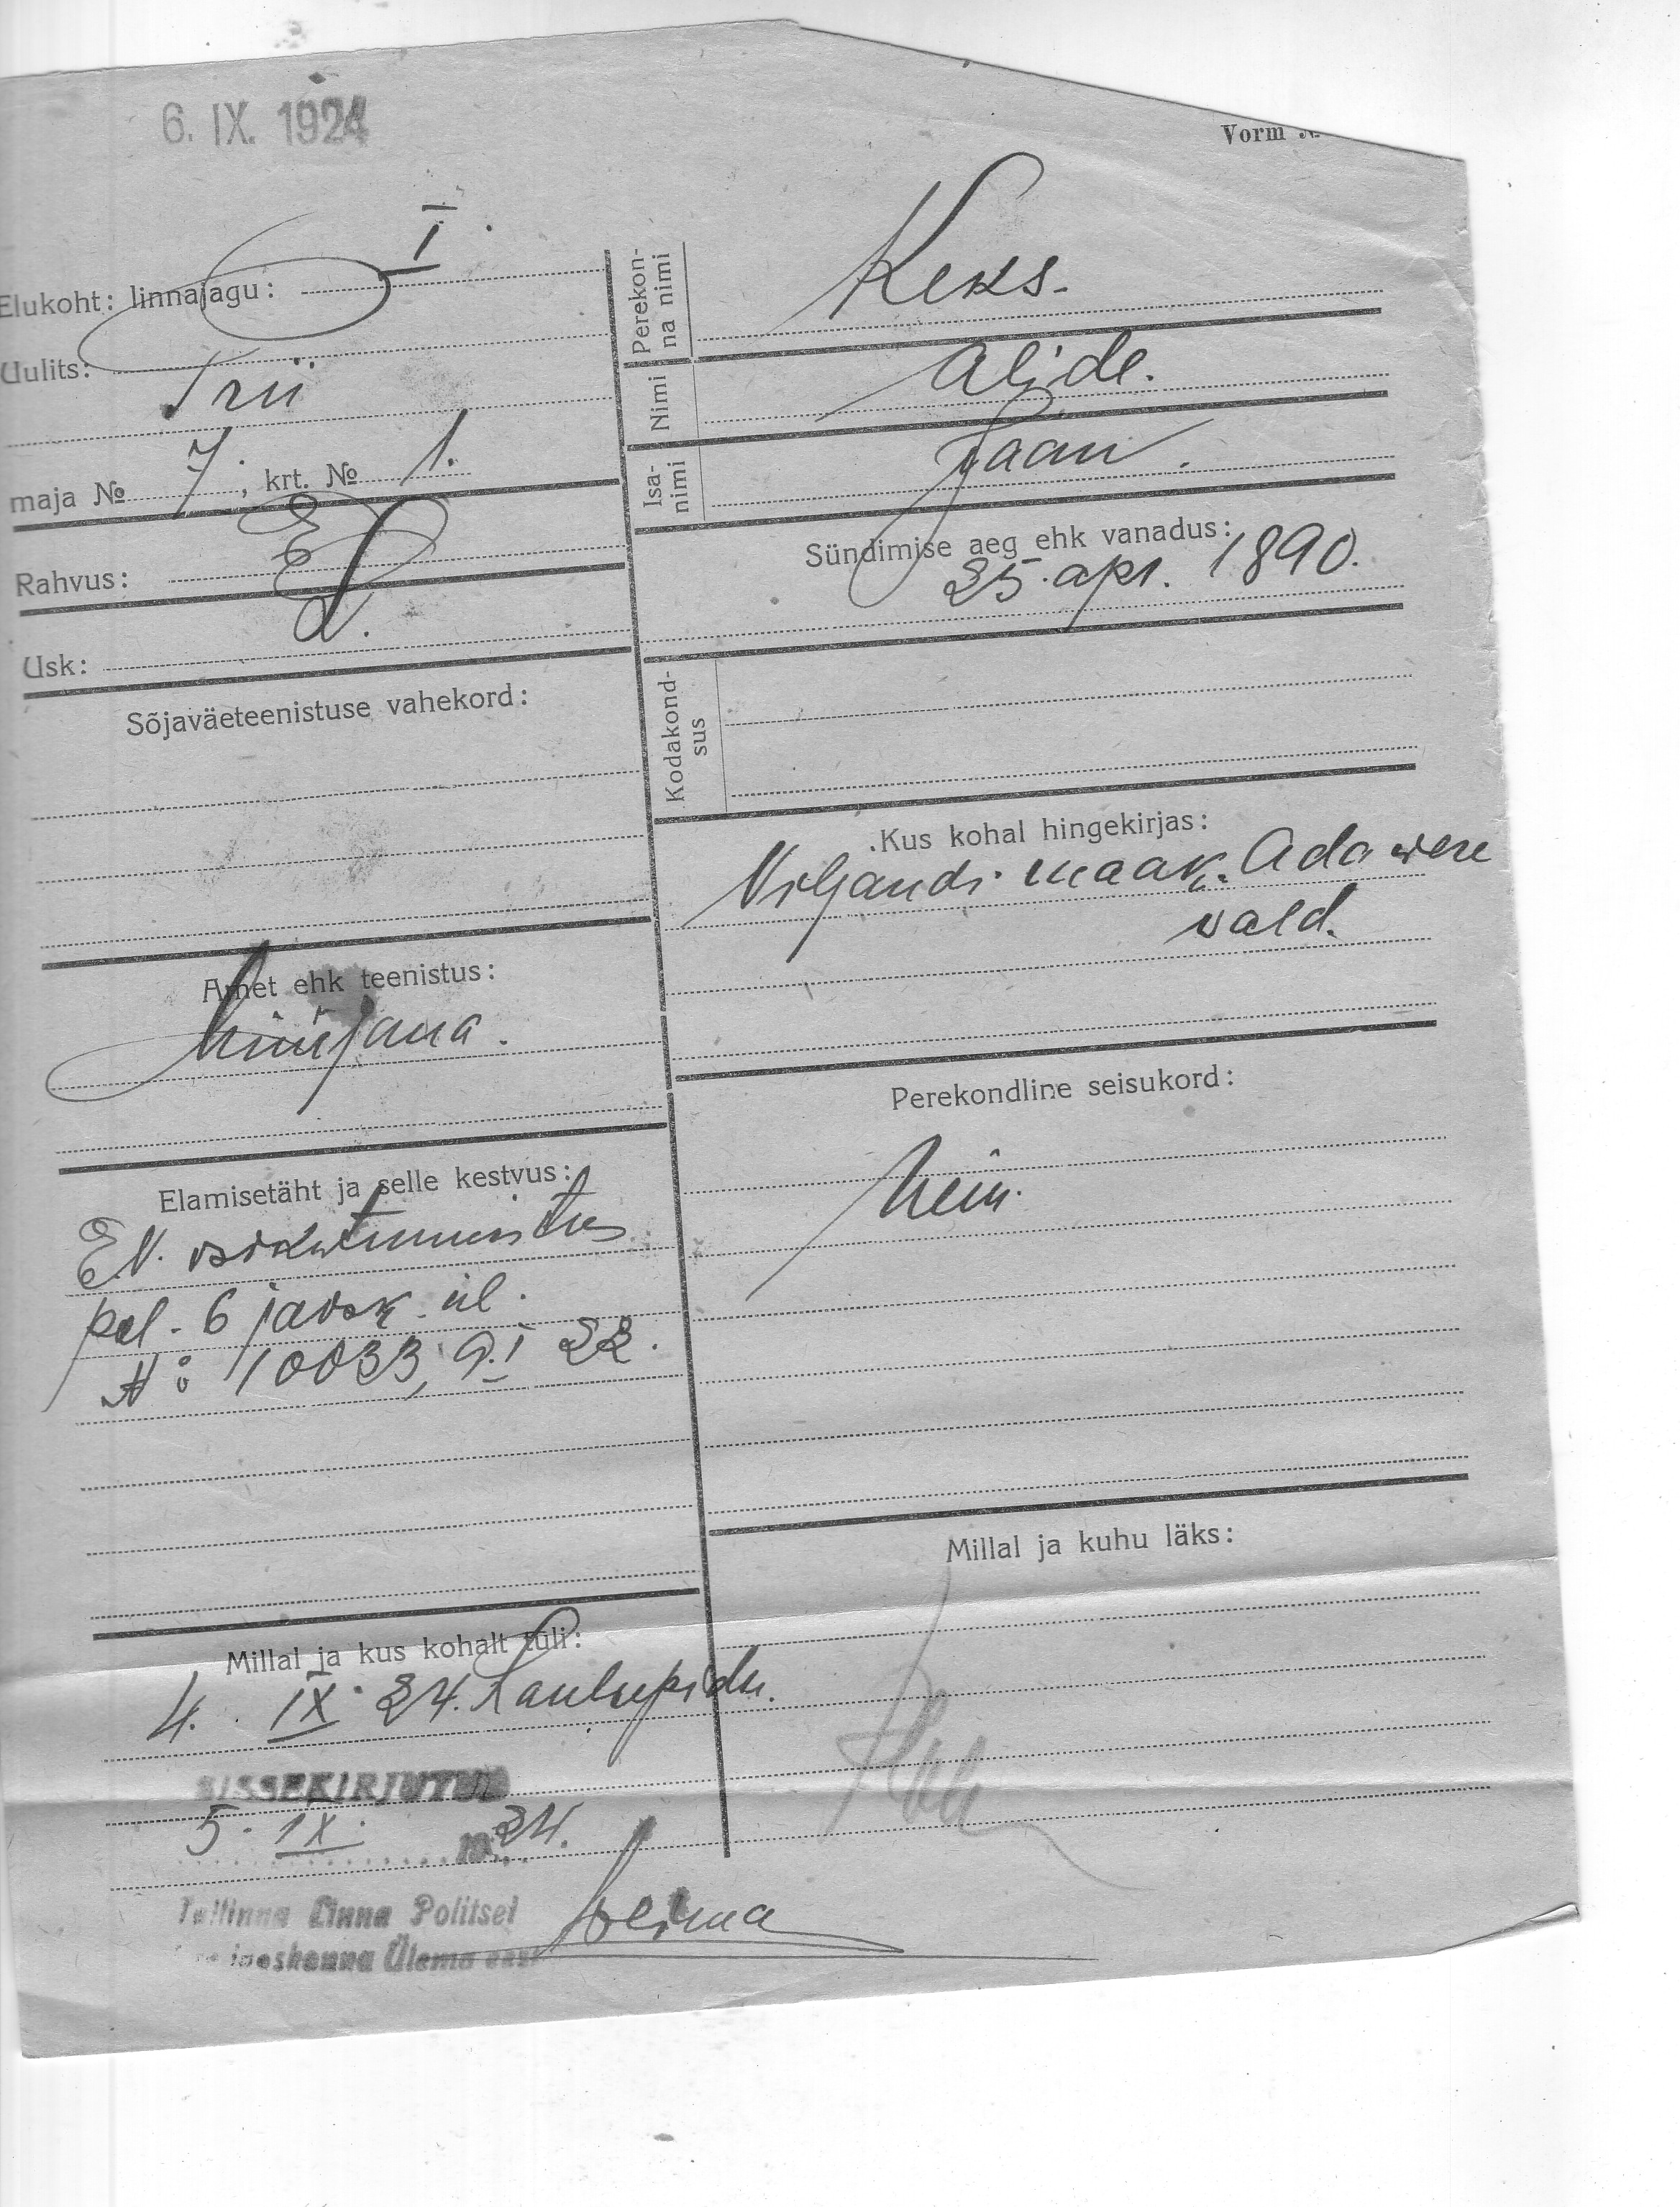 6. IX. 1924
Vorm №
Elukoht: linnajagu: I.
Uulits:
maja № 7; krt. № 1.
Rahvus: E
Usk: L.
Sõjaväeteenistuse vahekord:
Amet ehk teenistus:
Elamisetäht ja selle kestvus:
E.V. isikutunnistus
pol. 6 jaosk. ül.
№: 10033, 9.I 22.
Millal ja kus kohalt tuli:
4. IX. 24.
SISSEKIRJUTUD
5. IX. 1924.
Tallinna Linna Politsei
jaoskonna Ülema eest
Perekon-
na nimi
Keks.
Nimi
Alide.
Isa-
nimi
Jaan.
Sündimise aeg ehk vanadus:
25. apr. 1890.
Kodakond-
sus
Kus kohal hingekirjas:
Viljandi maak. Adawere
vald.
Perekondline seisukord:
Millal ja kuhu läks: